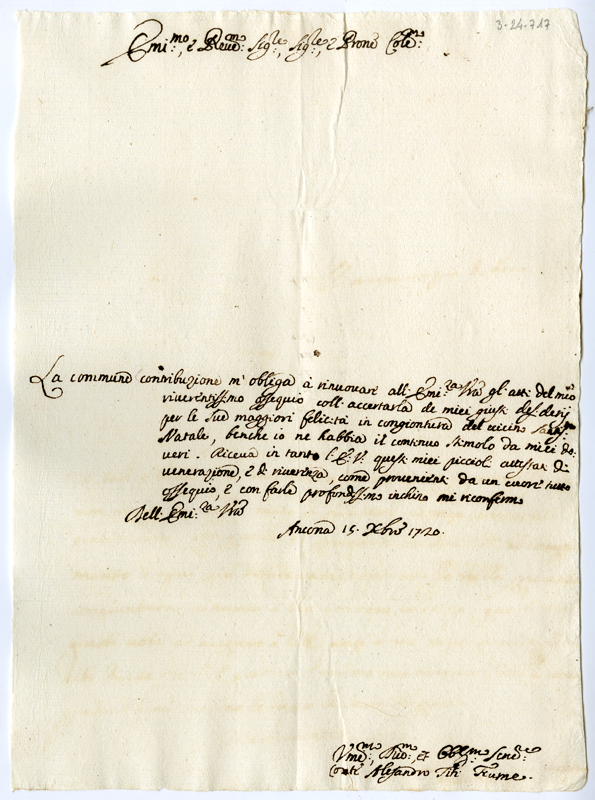 3-24-717
Emi:mo, e Reve:mo Sig:re, Sig:re, e Prone Cole:mo
La commune contribuzione m'obliga à rinuovare all: Emi:za Vra gl'atti del mio
riverentissmo ossequio coll'accertarla de miei giusti desi
per le Sue maggiori felicità in congiontura del vicino Santo
Natale, benche io ne habbia il continuo stimolo da miei do:
veri. Riceva in tanto l'E.V. questi miei piccioli attestati di
venerazione, e di riverenza, come provenienti da un cuore tutto
ossequio, e con farle profondissmo inchino mi riconfermo
Dell: Emi:za Vra
Ancona 15. Xbre 1720.
Vme:mo, Dev:mo, et Obblig:mo Serre:
Conte Alesandro Fiume.